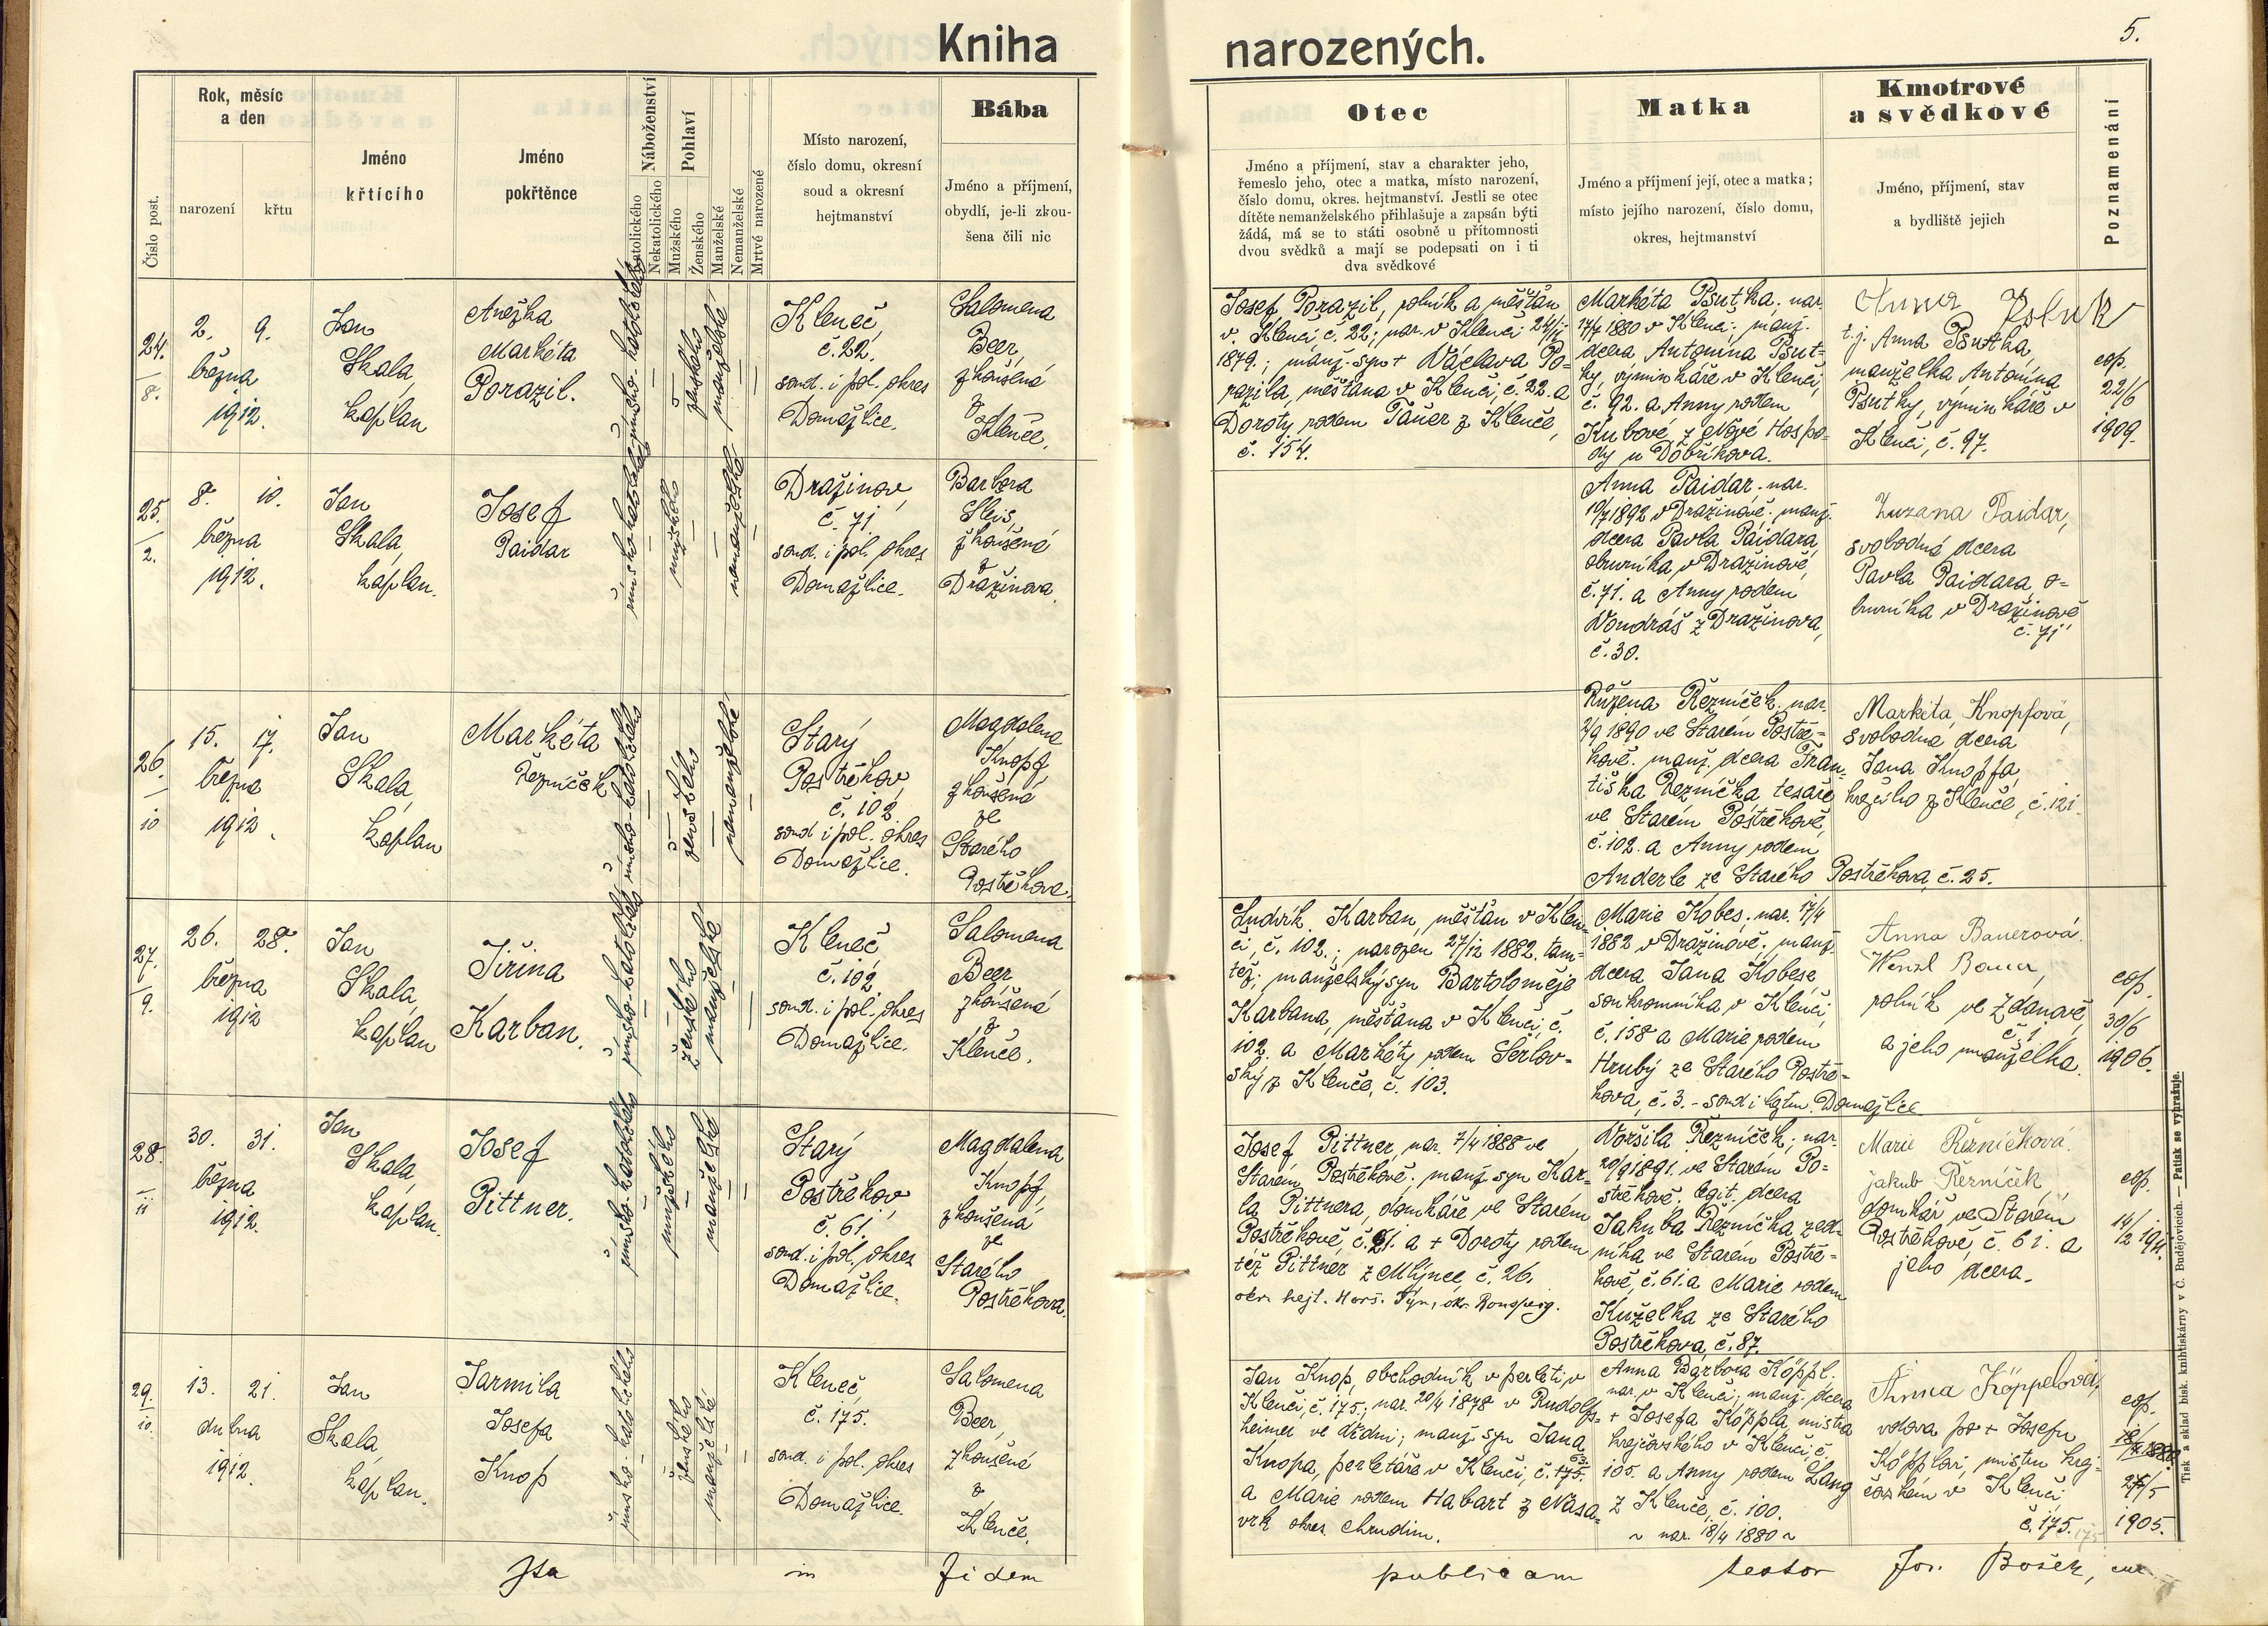 Kniha narozených.
5.
Číslo post.
Rok, měsíc
a den
narození
křtu
Jméno
křtícího
Jméno
pokřtěnce
Náboženství
Katolického
Nekatolického
Pohlaví
Mužského
Ženského
Manželské
Nemanželské
Mrtvé narozené
Místo narození,
číslo domu, okresní
soud a okresní
hejtmanství
Bába
Jméno a příjmení,
obydlí, je-li zkou-
šena čili nic
Otec
Jméno a příjmení, stav a charakter jeho,
řemeslo jeho, otec a matka, místo narození,
číslo domu, okres. hejtmanství. Jestli se otec
dítěte nemanželského přihlašuje a zapsán býti
žádá, má se to státi osobně u přítomnosti
dvou svědků a mají se podepsati on i ti
dva svědkové
Matka
Jméno a příjmení její, otec a matka;
místo jejího narození, číslo domu,
okres, hejtmanství
Kmotrové
a svědkové
Jméno, příjmení, stav
a bydliště jejich
Poznamenání
24.
8.
2. 9.
března
1912.
Jan
Skala,
kaplan
Anežka
Markéta
Porazil.
římsko-katolické
ženského
manželské
Kleneč,
č. 22.
soud. i pol. okres
Domažlice.
Salomena
Beer,
zkoušená
z
Klenče.
Josef Porazil, rolník a měšťan
v Klenči, č. 22; nar. v Klenči 24/
1879.; manž. syn + Václava Po-
razila, měšťana v Klenči, č. 22. a
Doroty rodem Tauer z Klenče,
č. 154.
Markéta Psutka. nar.
17/7 1880 v Klenči. manž.
dcera Antonína Psut-
ky, výminkáře v Klenči,
č. 92. a Anny rodem
Kubové z Nové Hospo-
dy u Dobříkova.
Anna
t. j. Anna Psutka,
manželka Antonína
Psutky, výminkáře v
Klenči, č. 97.
cop.
22/6
1909.
25.
2.
8. 10.
března
1912.
Jan
Skala,
kaplan.
Josef
Paidar
římsko-katolické
mužského
nemanželské
Dražinov,
č. 71
soud. i pol. okres
Domažlice.
Barbora
Sleis,
zkoušená
z
Dražinova.
Anna Paidar. nar.
19/7 1892 v Dražinově. manž.
dcera Pavla Paidara,
obuvníka v Dražinově,
č. 71. a Anny rodem
Vondráš z Dražinova,
č. 30.
Zuzana Paidar,
svobodná dcera
Pavla Paidara, o-
buvníka v Dražinově
č. 71
26.
10
15. 17.
března
1912.
Jan
Skala,
kaplan
Markéta
Řezníček
římsko-katolického
ženského
nemanželské
Starý
Postřekov,
č. 102
soud i pol. okres
Domažlice.
Magdalena
Knopf,
zkoušená
ze
Starého
Postřekova.
Růžena Řezníček. nar.
2/9 1890 ve Starém Postře-
kově. manž. dcera Fran-
tiška Řezníčka tesaře
ve Starém Postřekově,
č. 102. a Anny rodem
Anderle ze Starého Postřekova, č. 25.
Markéta Knopfová,
svobodna dcera
Jana Knopfa,
krejčího z Klenče, č. 121.
27.
9.
26. 28.
března
1912
Jan
Skala,
kaplan
Jiřina
Karban.
římsko-katolického
ženského
manželské
Kleneč,
č. 102
soud. i pol. okres
Domažlice.
Salomena
Beer,
zkoušená
z
Klenče.
Ludvík Karban, měšťan v Klen-
či, č. 102.; narozen 27/12 1882. tam-
též; manželský syn Bartoloměje
Karbana, měšťana v Klenči, č.
102. a Markéty rodem Serlov-
ský z Klenče, č. 103.
Marie Kobes. nar. 17/4
1882 v Dražinově. manž.
dcera Jana Kobese,
soukromníka v Klenči,
č. 158 a Marie rodem
Hrubý ze Starého Postře-
kova, č. 3. - soud i hejtm. Domažlice
Anna Bauerová.
Wenzl Bauer,
rolník ve Ždanově,
č. 1
a jeho manželka.
cop.
30/6
1906.
28.
11
30. 31.
března
1912.
Jan
Skala,
kaplan.
Josef
Pittner.
římsko-katolického
mužského
manželské
Starý
Postřekov,
č. 61.
soud. i pol. okres
Domažlice.
Magdalena
Knopf,
zkoušená
ze
Starého
Postřekova.
Josef Pittner, nar. 7/4 1888 ve
Starém Postřekově. manž syn Kar-
la Pittnera, domkáře ve Starém
Postřekově, č. 21. a + Doroty rodem
též Pittner z Mlýnce, č. 26.
okr. hejt. Horš. Týn, okr. Ronsperg.
Voršila Řezníček; nar.
20/9 1891. ve Starém Po-
střekově. legit. dcera
Jakuba Řezníčka, zed-
níka ve Starém Postře-
kově, č. 61. a Marie rodem
Kuželka ze Starého
Postřekova, č. 87.
Marie Řezníčková.
Jakub Řezníček,
domkář ve Starém
Postřekově, č. 61. a
jeho dcera.
cop.
14/2 1911.
29.
10.
13. 21.
dubna
1912.
Jan
Skala,
kaplan.
Jarmila
Josefa
Knop
římsko-katolického
ženského
manželské
Kleneč,
č. 175.
soud. i pol. okres
Domažlice.
Salomena
Beer,
zkoušená
z
Klenče.
Jan Knop, obchodník v perleti, v
Klenči, č. 175; nar. 20/4 1878 v Rudolfs-
heimu ve Vídni; manž. syn Jana
Knopa, perletáře v Klenči, č. 175. 63
a Marie rodem Habart z Nasa-
vrk okres Chrudim.
Anna Barbora Köppl.
nar. v Klenči; manž. dcera
+ Josefa Köppla, mistra
krejčovského v Klenči, č.
105. a Anny rodem Lang
z Klenče, č. 100.
~ nar. 18/4 1880 ~
Anna Köppelová,
vdova po + Josefu
Köpplovi, mistru krej-
čovském v Klenči,
č. 175. 175
cop.
27/5
1905.
Ita in fidem publicam testor Jos. Bošek,
Tisk a sklad bisk. knihtiskárny v Č. Budějovicích. — Patisk se vyhražuje.